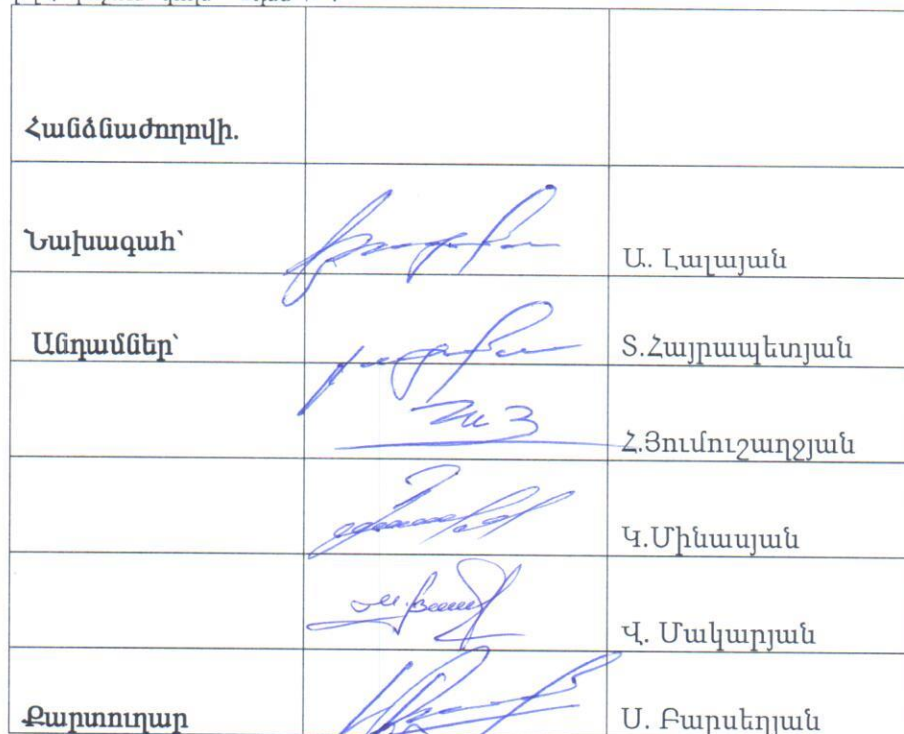 Հանձնաժողովի.
Նախագահ՝ Ա. Լալայան
Անդամներ՝ Տ.Հայրապետյան
Հ.Յումուշաղջյան
Կ.Մինասյան
Վ. Մակարյան
Քարտուղար Ս. Բարսեղյան